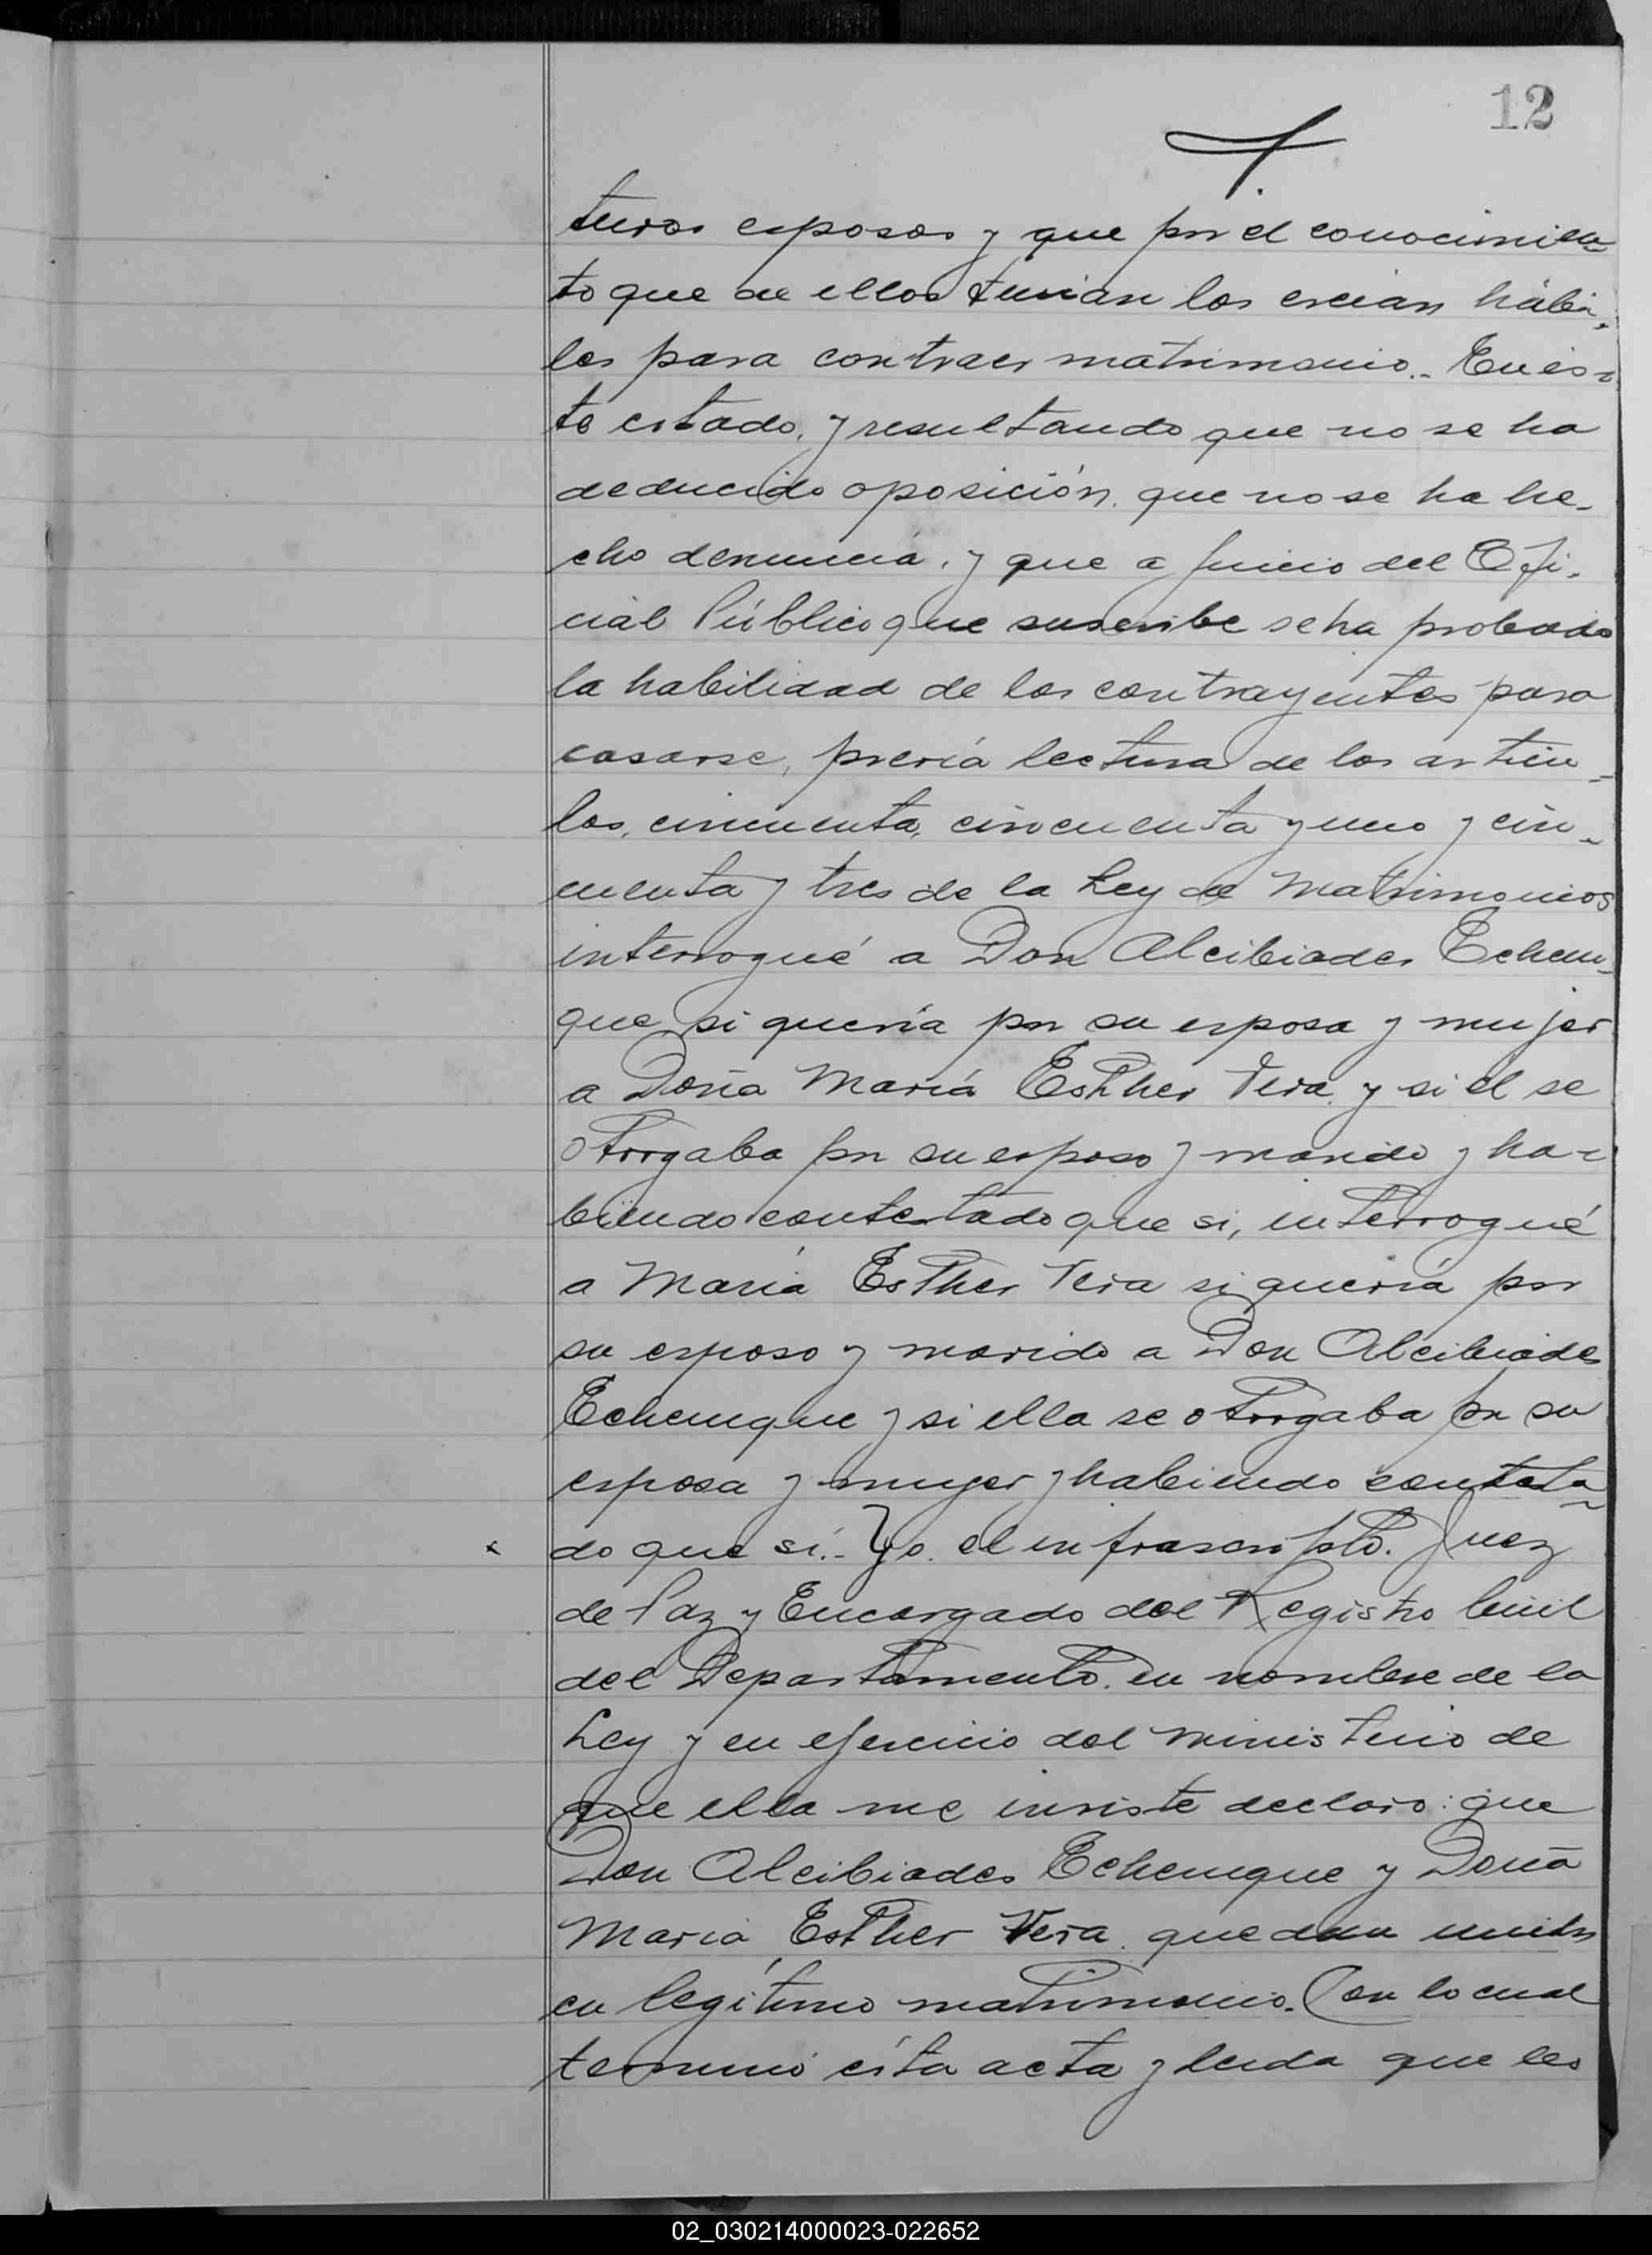 12
turos esposos y que por el conocimien=
to que de ellos tenian los creian hábi=
les para contraer matrimonio.- En és=
te estado, y resultando que no se ha
deducido oposición, que no se ha he-
cho denuncia, y que a juicio del Ofi-
cial Público que suscribe se ha probado
la habilidad de los contrayentes para
casarse, previa lectura de los artícu-
los, cincuenta, cincuenta y uno y cin-
cuenta y tres de la Ley de Matrimonios
interrogué a Don Alcibiades Echeni-
que, si quería por su esposa y mujer
a Doña María Esther Vera, y si el se
otorgaba por su esposo y marido y ha=
biendo contestado que si, interrogué
a María Esther Vera si quería por
su esposo y marido a Don Alcibiades
Echenique y si ella se otorgaba por su
esposa y mujer y habiendo contesta-
x do que sí.- Yo, el infrascripto, Juez
de Paz y Encargado del Registro Civil
del Departamento, en nombre de la
Ley y en ejercicio del ministerio de
que ella me inviste declaro: que
Don Alcibiades Echenique y Doña
María Esther Vera, quedan unidos
en legítimo matrimonio. Con lo cual
terminó ésta acta y leida que les
02_030214000023-022652